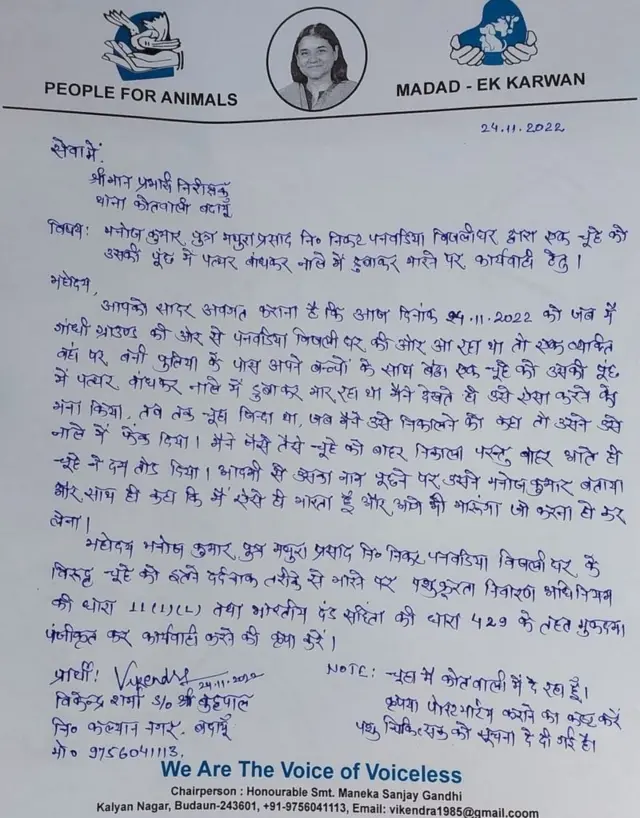 PEOPLE FOR ANIMALS
MADAD - EK KARWAN
24.11.2022
सेवा में,
श्रीमान प्रभारी निरीक्षक
थाना कोतवाली बदायूँ
विषय: मनोज कुमार पुत्र मथुरा प्रसाद नि० निकट पनवडिया बिजलीघर द्वारा एक चूहे को
उसकी पूंछ में पत्थर बांधकर नाले में डुबाकर मारने पर कार्यवाही हेतु।
महोदय,
आपको सादर अवगत कराना है कि आज दिनांक 24.11.2022 को जब मैं
गांधी ग्राउण्ड की ओर से पनवडिया बिजली घर की ओर आ रहा था तो एक व्यक्ति
वहां पर बनी पुलिया के पास अपने बच्चों के साथ बैठा एक चूहे को उसकी पूंछ
में पत्थर बांधकर नाले में डुबाकर मार रहा था मैंने देखते ही उसे ऐसा करने को
मना किया, तब तक चूहा जिन्दा था, जब मैंने उसे निकालने को कहा तो उसने उसे
नाले में फेंक दिया। मैंने जैसे तैसे चूहे को बाहर निकाला परन्तु बाहर आते ही
चूहे ने दम तोड दिया। आदमी से उसका नाम पूछने पर उसने मनोज कुमार बताया
और साथ ही कहा कि मैं ऐसे ही मारता हूँ और आगे भी मारूंगा जो करना हो कर
लेना।
महोदय मनोज कुमार पुत्र मथुरा प्रसाद नि० निकट पनवडिया बिजलीघर के
विरुद्ध चूहे को इतने दर्दनाक तरीके से मारने पर पशु क्रूरता निवारण अधिनियम
की धारा 11(1)(L) तथा भारतीय दंड संहिता की धारा 429 के तहत मुकदमा
पंजीकृत कर कार्यवाही करने की कृपा करें।
प्रार्थी: Vikendra 24.11.2022
विकेन्द्र शर्मा S/o श्री
नि० कल्यान नगर, बदायूँ
मो० 9756041113.
NOTE: चूहा मैं कोतवाली में दे रहा हूँ।
कृपया पोस्टमार्टम कराने का कष्ट करें
पशु चिकित्सक को सूचना दे दी गई है।
We Are The Voice of Voiceless
Chairperson : Honourable Smt. Maneka Sanjay Gandhi
Kalyan Nagar, Budaun-243601, +91-9756041113, Email: vikendra1985@gmail.com